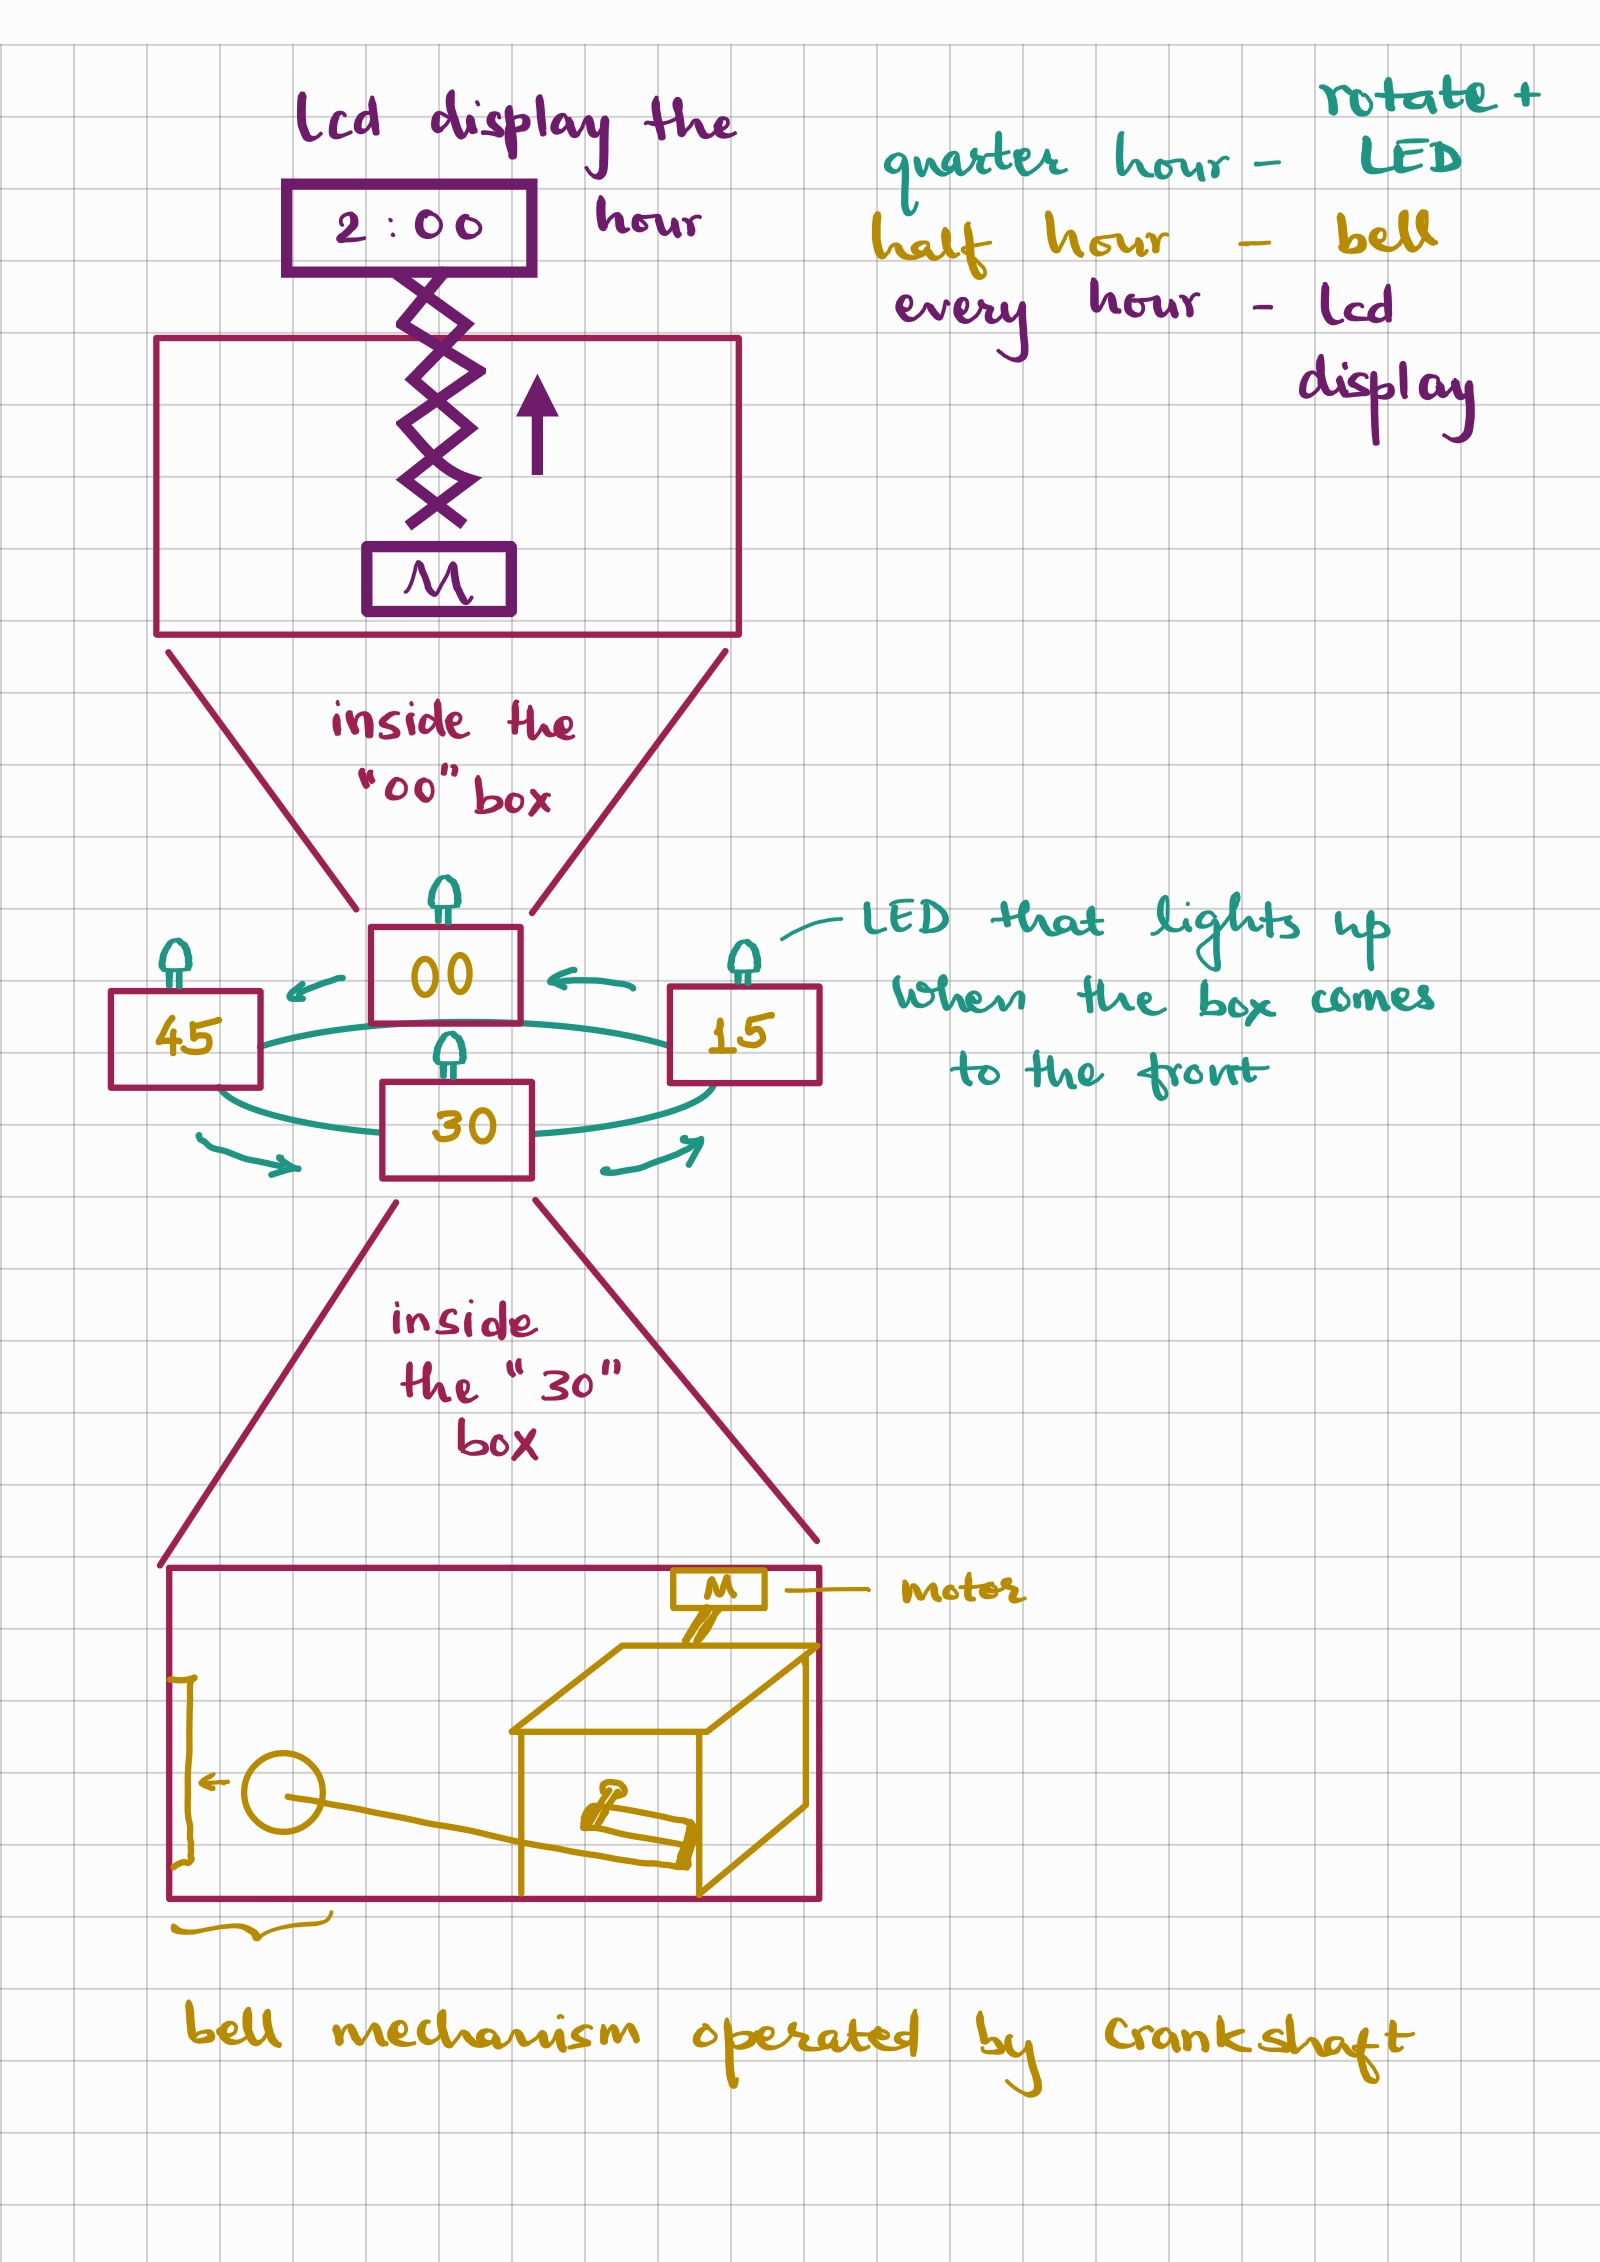 lcd display the
hour
2:00
rotate +
quarter hour - LED
half hour - bell
every hour - lcd
display
M
inside the
"00" box
00
45
15
30
LED that lights up
when the box comes
to the front
inside
the "30"
box
M
motor
bell mechanism operated by crankshaft